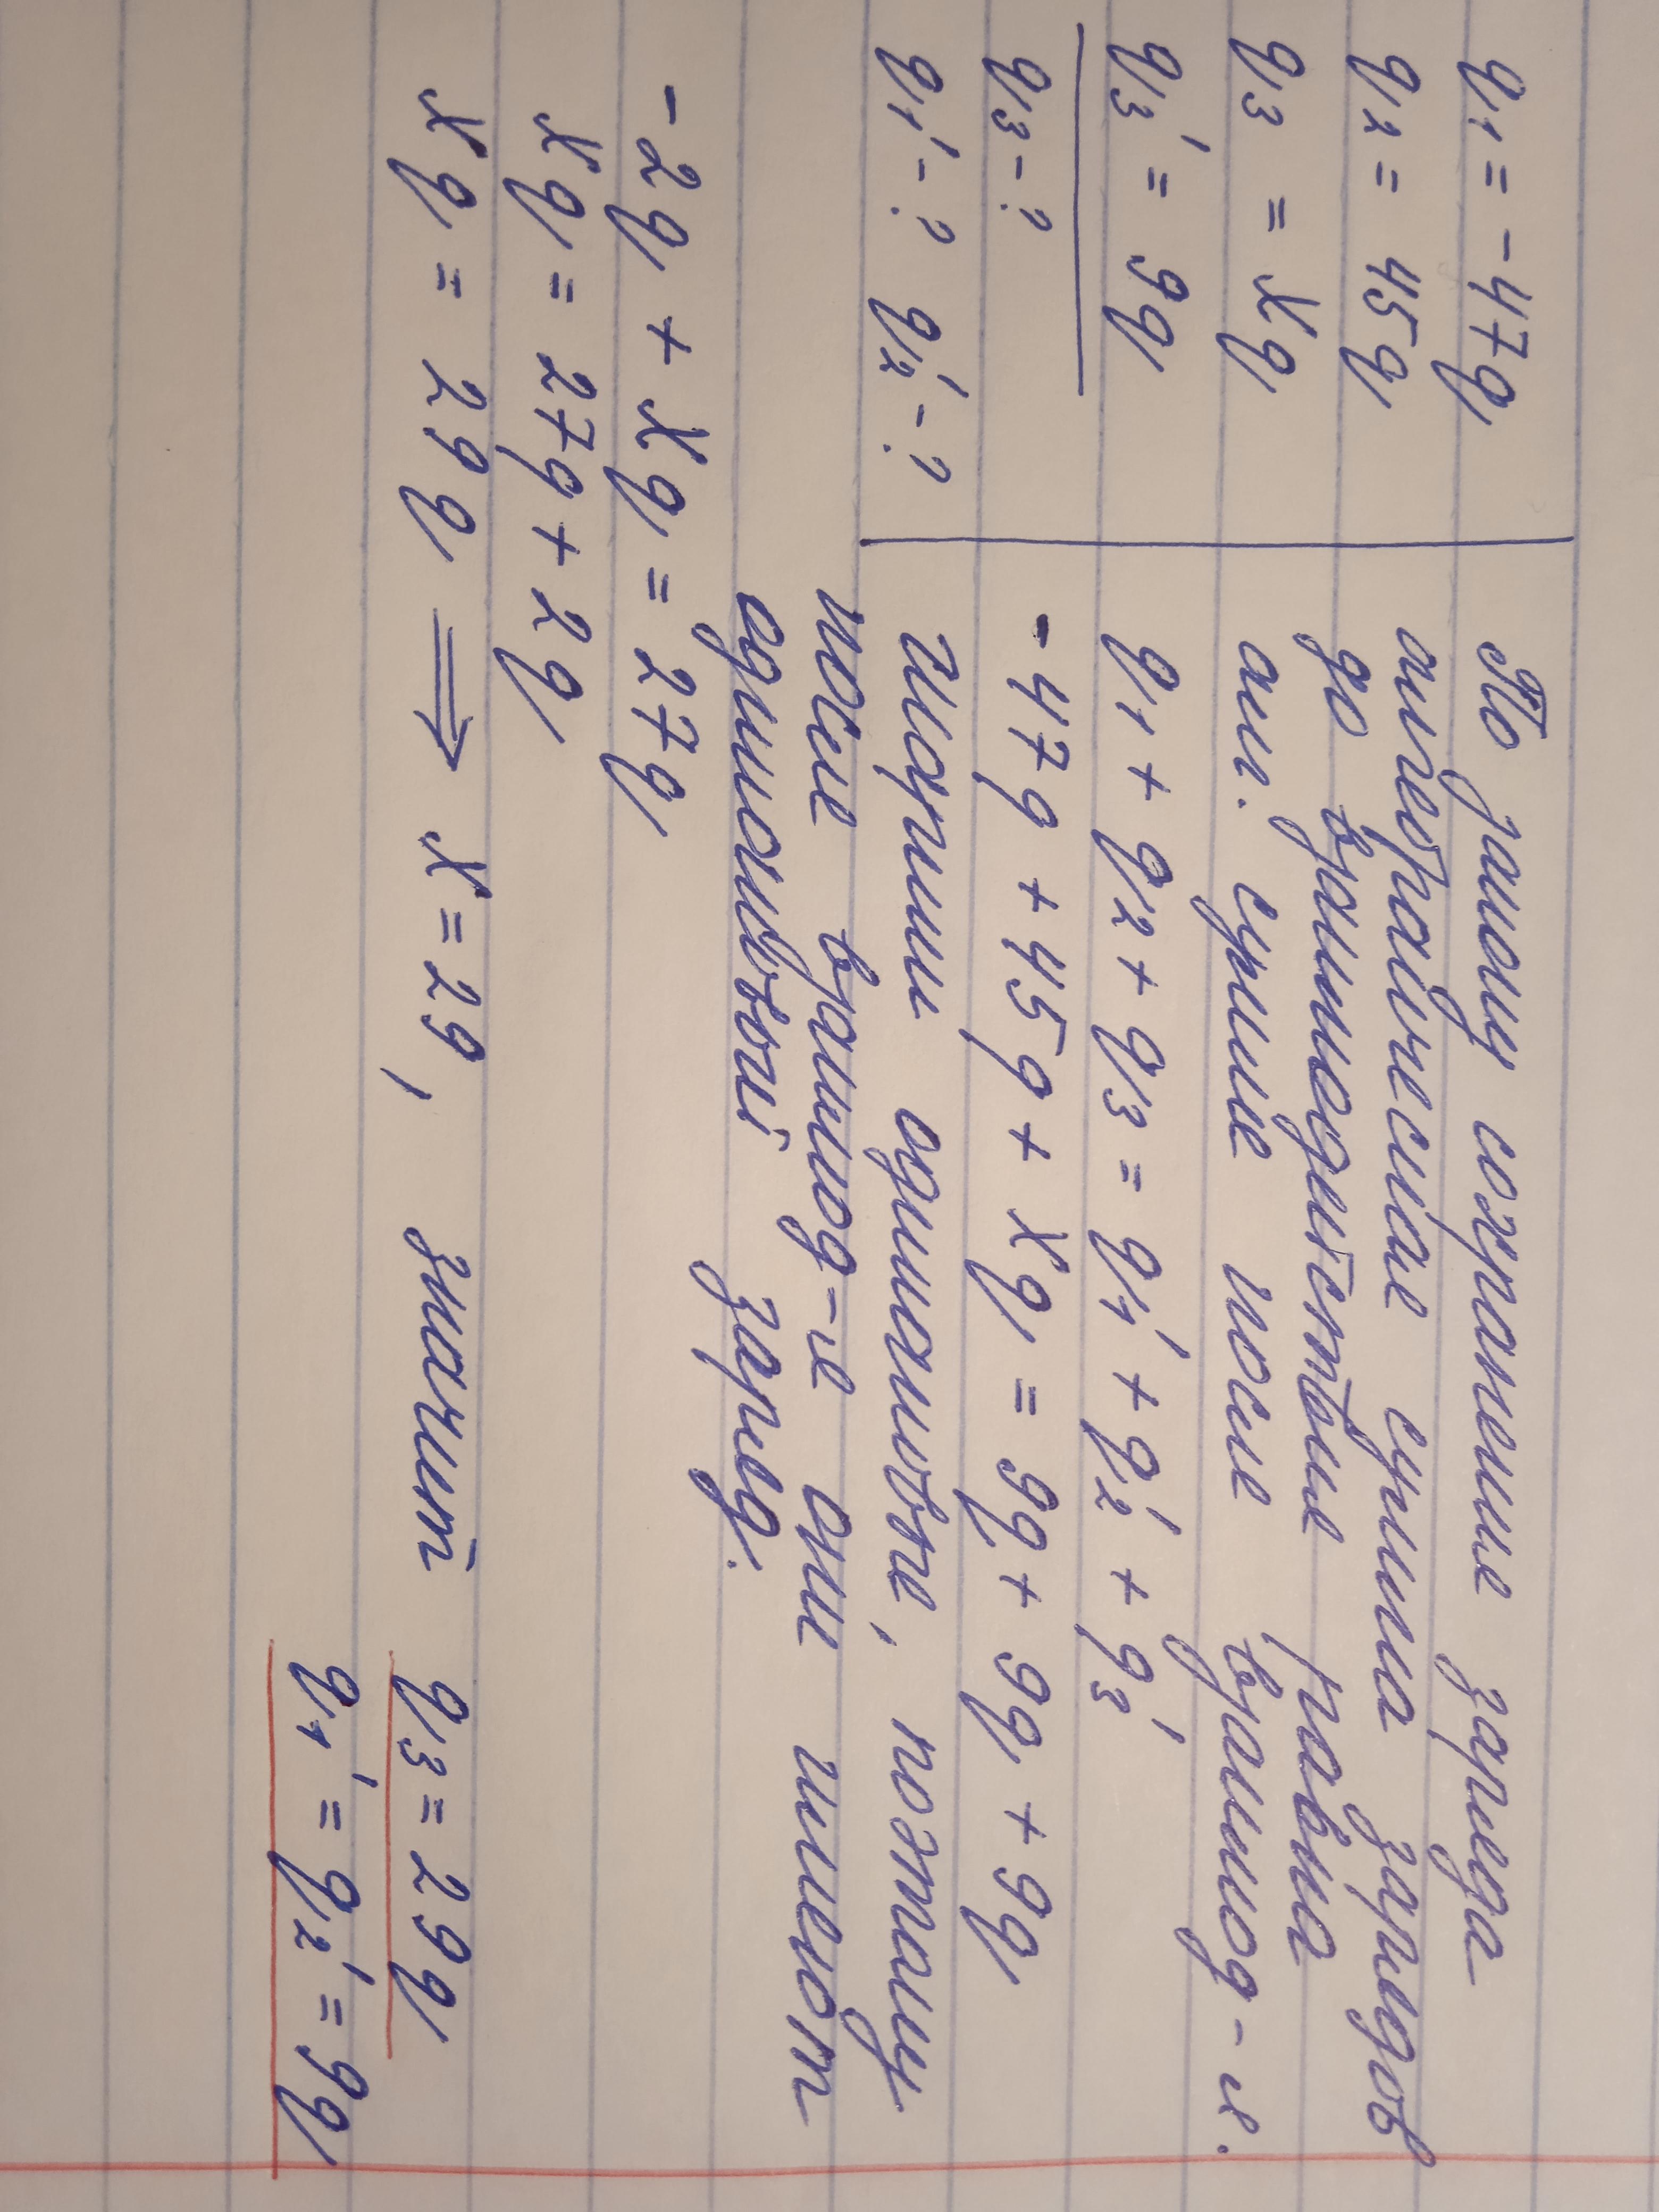 q₁ = -47q
q₂ = 45q
q₃ = xq
q₃' = 9q
q₃ - ?
q₁' - ? q₂' - ?
По закону сохранения заряда
алгебраическая сумма зарядов
до взаимодействия равна
алг. сумме после взаимод-я.
q₁ + q₂ + q₃ = q₁' + q₂' + q₃'
-47q + 45q + xq = 9q + 9q + 9q
Шарики одинаковые, поэтому
после взаимод-я они имеют
одинаковый заряд.
-2q + xq = 27q
xq = 27q + 2q
xq = 29q ⟹ x = 29, значит q₃ = 29q
q₁' = q₂' = 9q